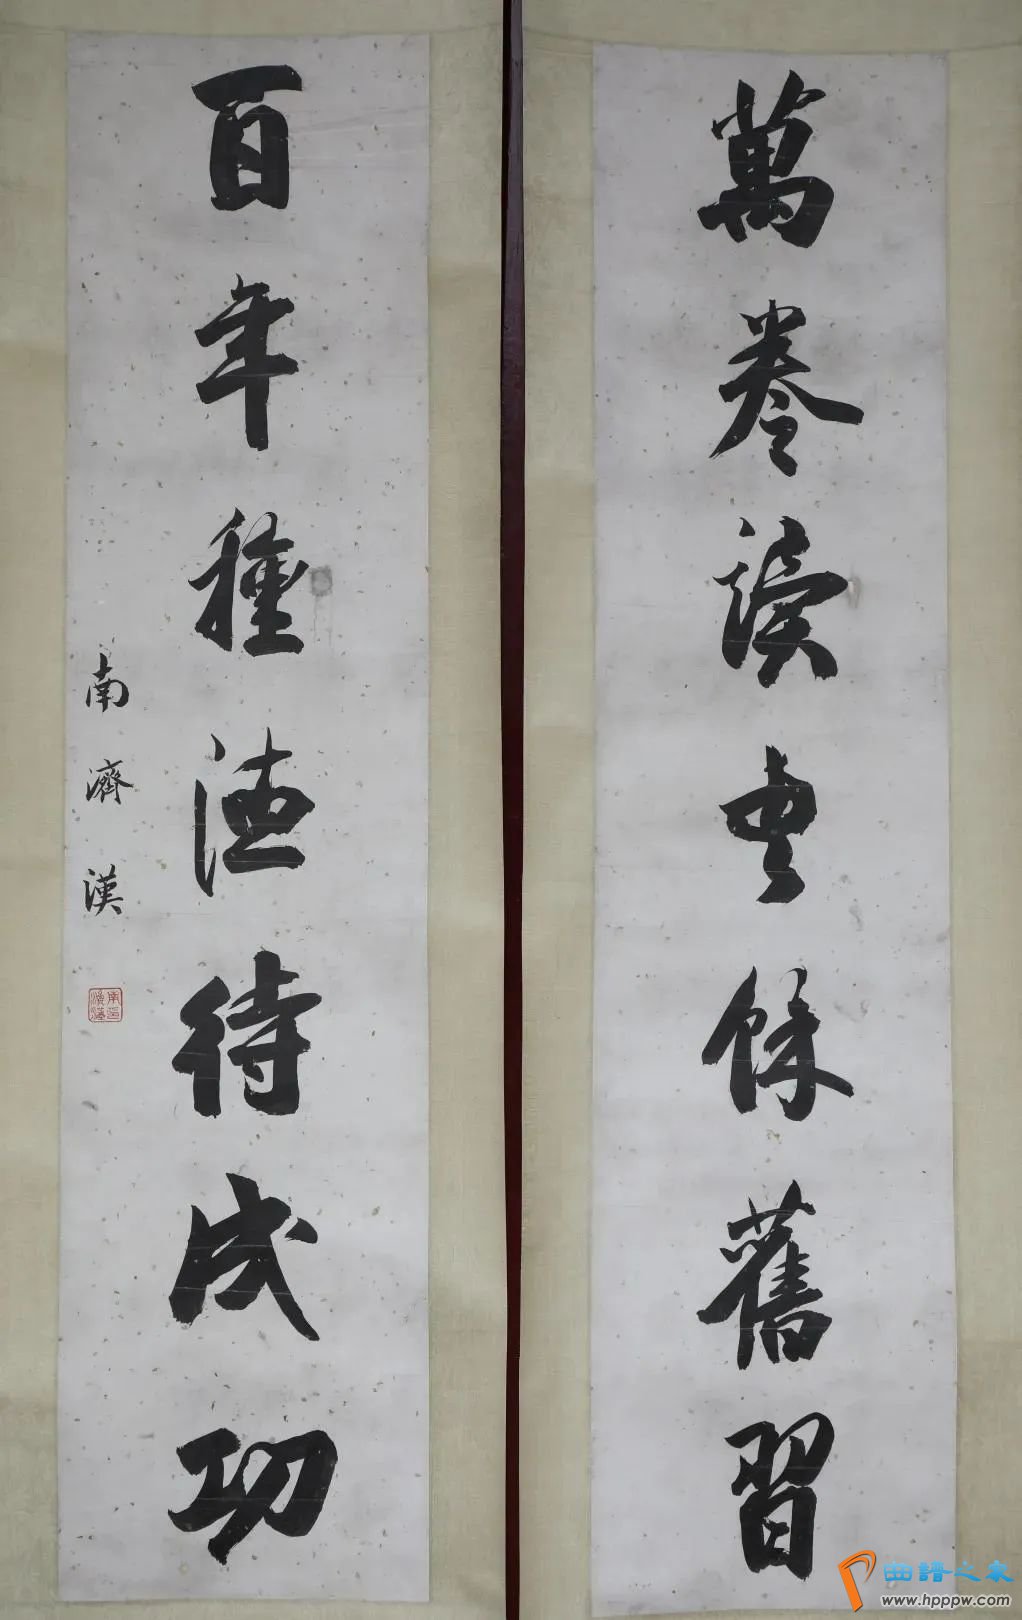 萬卷讀書餘舊習
百年種德待成功
南濟漢
曲譜之家
www.hpppw.com